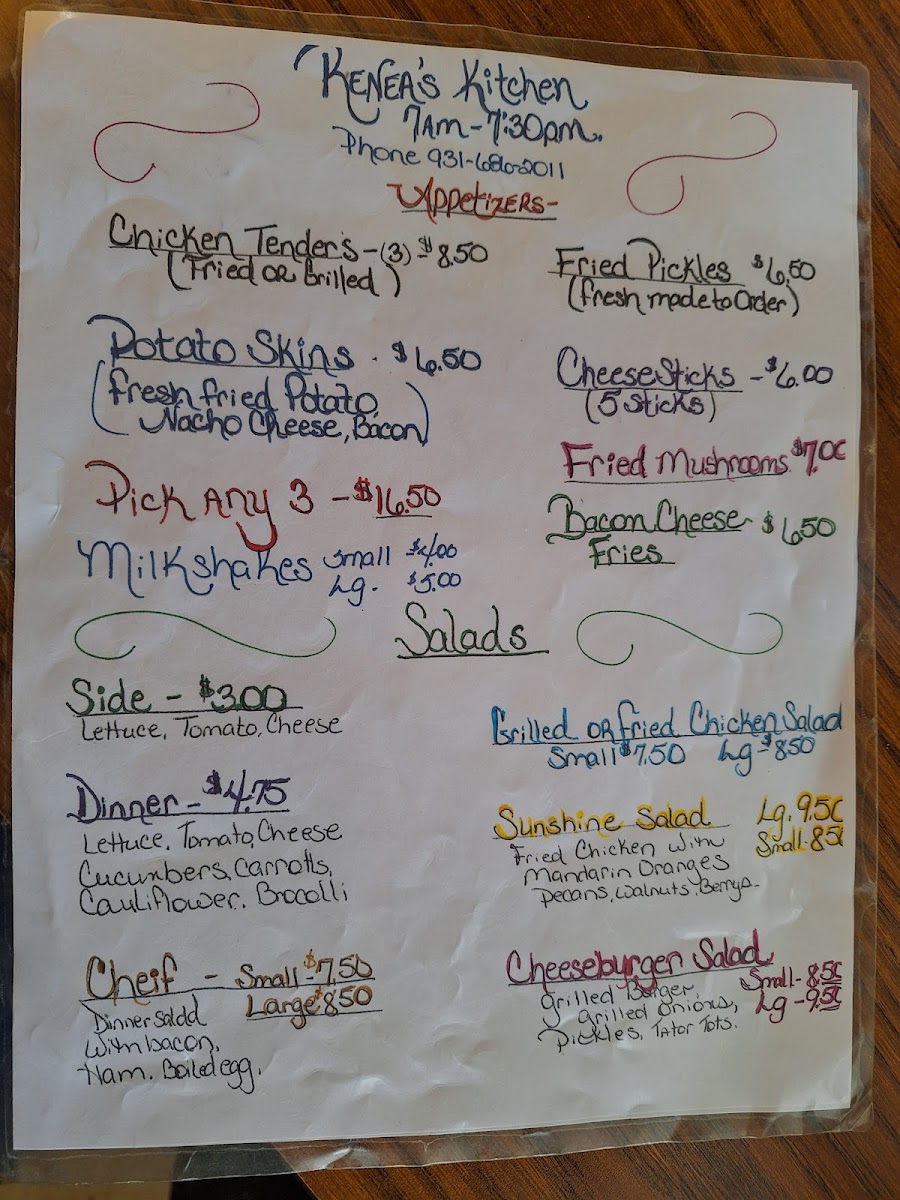 KENEA'S Kitchen
7AM-7:30pm.
Phone 931-686-2011
APPETIZERS-
Chicken Tenders-(3)-$8.50
(Fried OR Grilled)
Potato Skins. $6.50
(fresh fried Potato,
Nacho Cheese, Bacon)
Pick Any 3 - $16.50
Milkshakes small $4.00
Lg. $5.00
Fried Pickles $6.50
(fresh made to Order)
Cheese Sticks - $6.00
(5 Sticks)
Fried Mushrooms $7.00
Bacon Cheese $6.50
Fries
Salads
Side - $3.00
Lettuce, Tomato, Cheese
Dinner - $4.75
Lettuce, Tomato, Cheese
Cucumbers, Carrotts,
Cauliflower, Brocolli
Cheif - Small - $7.50
Large $8.50
Dinner Salad
With bacon,
Ham. Boiled egg.
Grilled OR fried Chicken Salad
Small $7.50 Lg-$8.50
Sunshine Salad Lg. 9.50
Small-8.50
Fried Chicken With
Mandarin Oranges
Pecans, Walnuts, Berrys-
Cheeseburger Salad
Small-8.50
Grilled Burger, Lg-9.50
grilled Onions,
Pickles, Tator Tots.